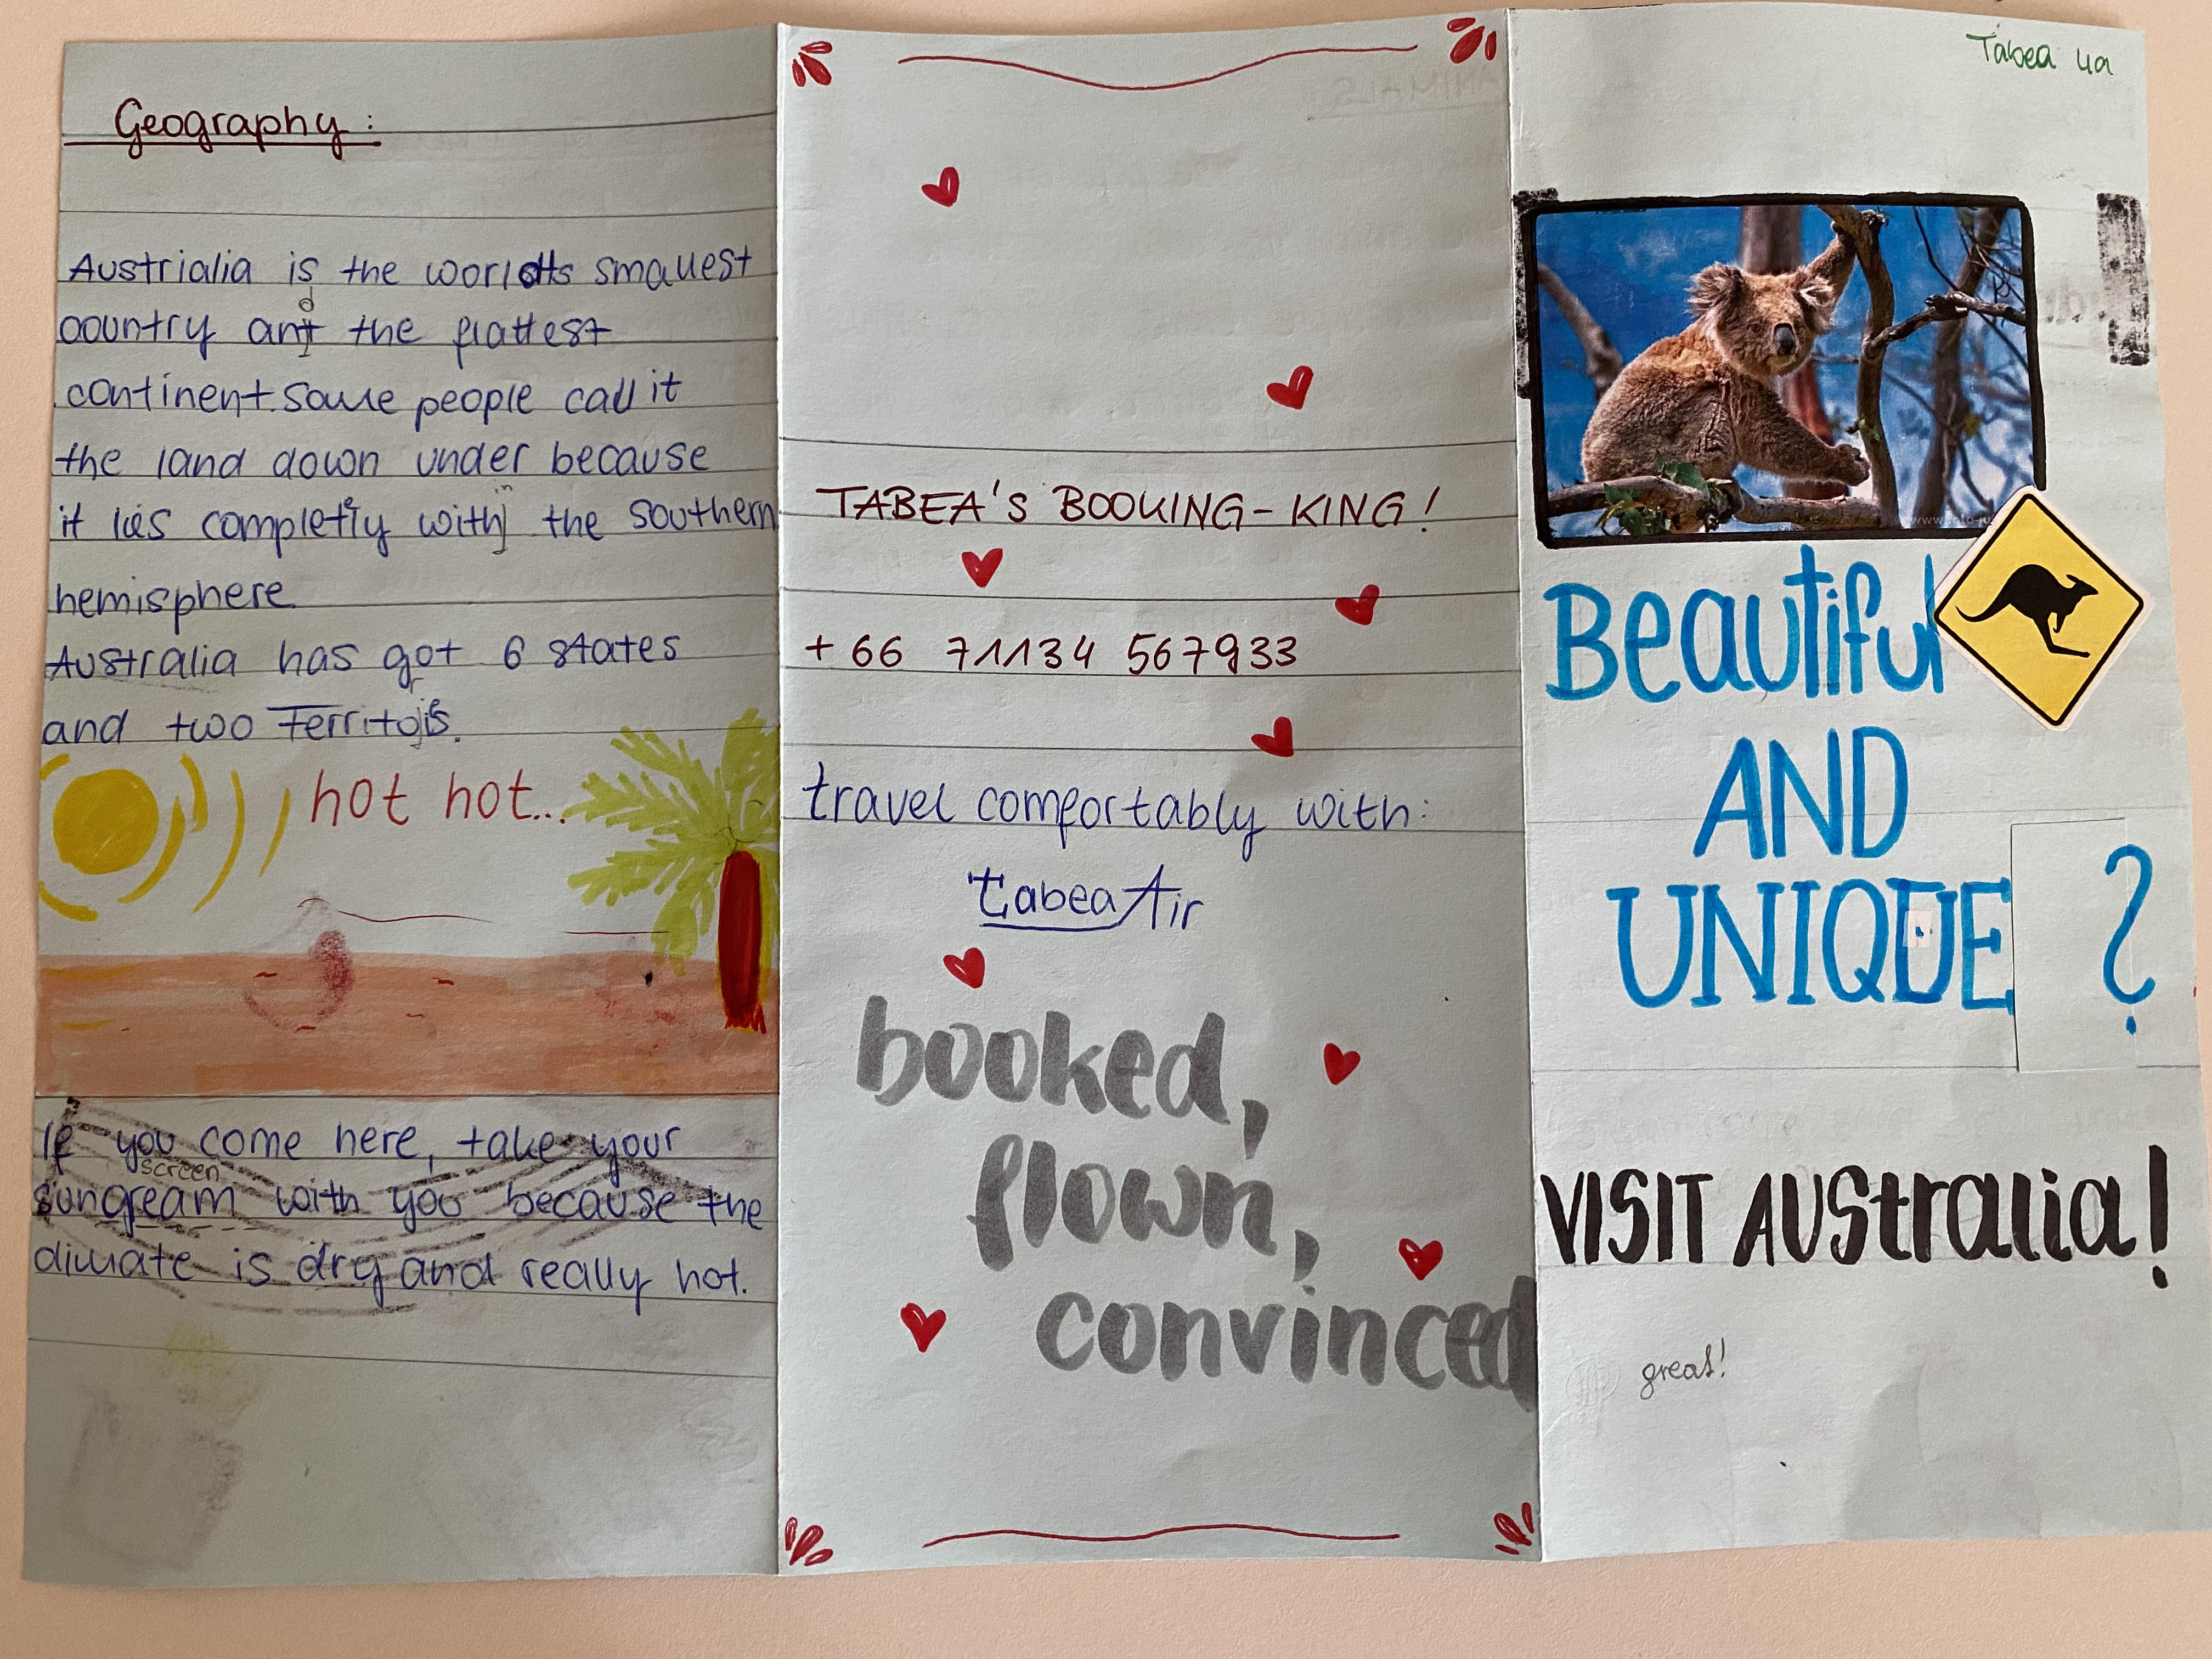 Geography:
Austrialia is the worldts smallest
d
country ant the flattest
continent. Some people call it
the land down under because
in
it lies completly with the southern
hemisphere
Australia has got 6 states
and two Territoris.
hot hot...
If you come here, take your
screen
sungream with you because the
climate is dry and really hot.
ANIMALS:
TABEA'S BOOKING-KING!
+66 71134 567933
travel comfortably with:
tabeaAir
booked,
flown,
convinced
Tabea 4a
Beautiful
AND
UNIQUE ?
VISIT AUStralia!
great!